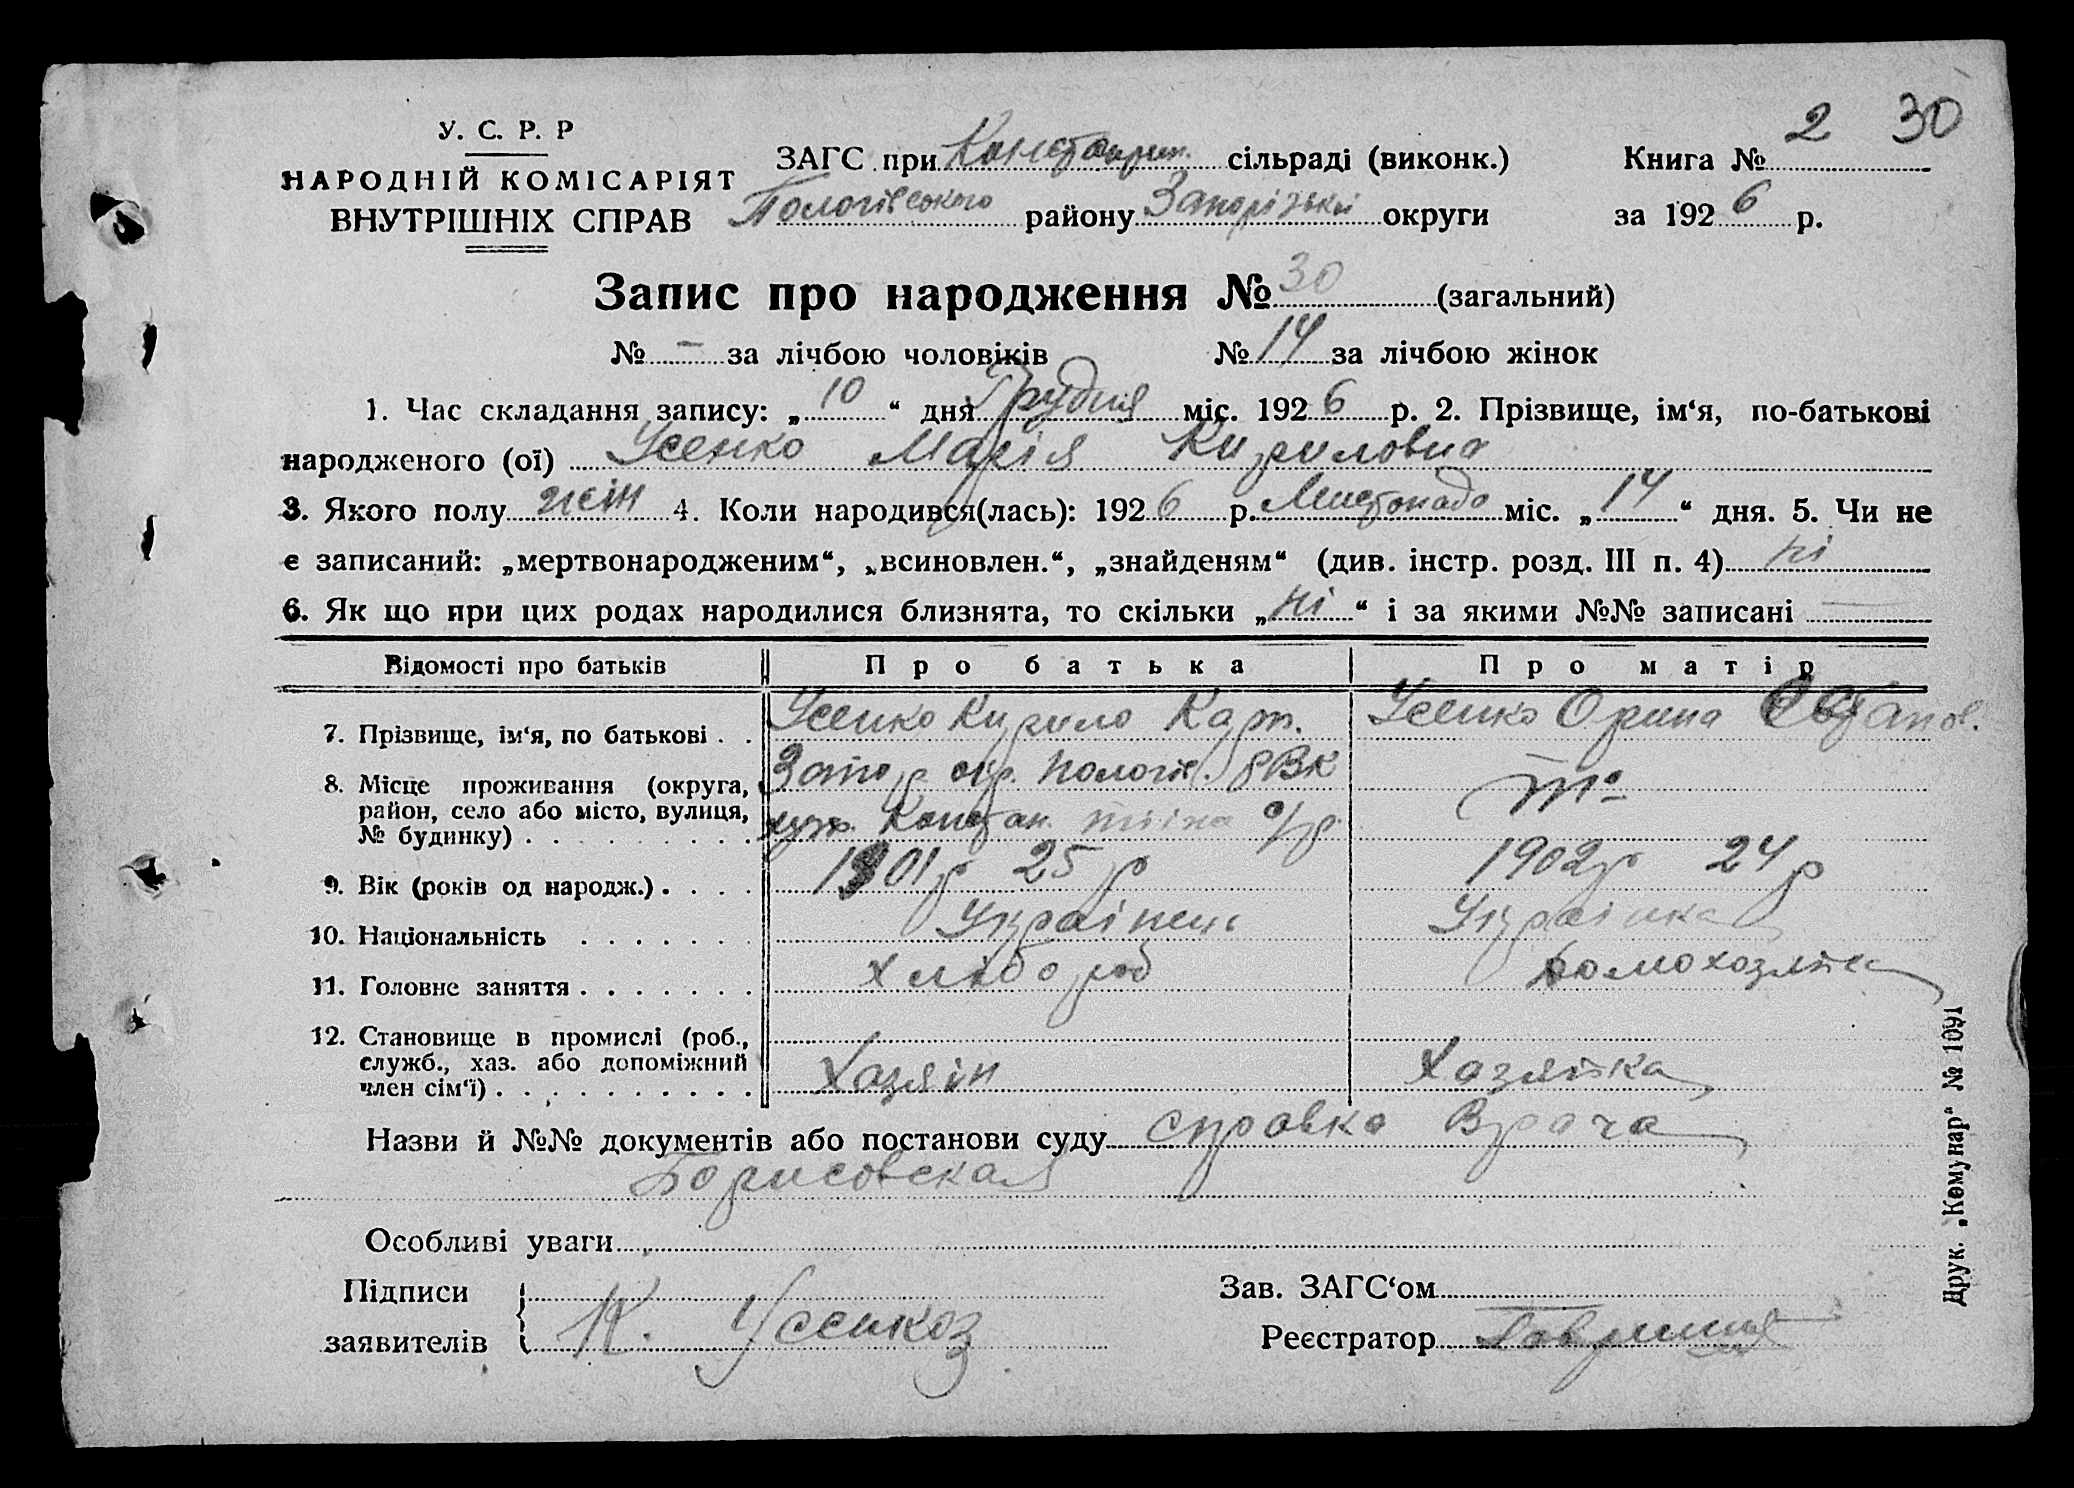 2 30
У. С. Р. Р
НАРОДНІЙ КОМІСАРІЯТ
ВНУТРІШНІХ СПРАВ
ЗАГС при сільраді (виконк.) Книга №
Пологівського району Запорізької округи за 1926 р.
Запис про народження № 30 (загальний)
№ - за лічбою чоловіків № 14 за лічбою жінок
1. Час складання запису: „10“ дня Грудня міс. 1926 р. 2. Прізвище, ім‘я, по-батькові
народженого (ої) Усенко Марія Кириловна
3. Якого полу жін 4. Коли народився(лась): 1926 р. Листопада міс. „14“ дня. 5. Чи не
є записаний: „мертвонародженим“, „всиновлен.“, „знайденям“ (див. інстр. розд. III п. 4) ні
6. Як що при цих родах народилися близнята, то скільки „ні“ і за якими №№ записані —
Відомості про батьків Про батька Про матір
7. Прізвище, ім‘я, по батькові . . Усенко Кирило Карп. Усенко Орина
8. Місце проживання (округа, район, село або місто, вулиця, № будинку) . . . . . . . . . Запор окр. Пологів. РВК
хут. с/р. то
9. Вік (років од народж.) . . . . 1901 р 25 р 1902 р 24 р
10. Національність . . . . . . . Українець Українка
11. Головне заняття . . . . . . . Хлібороб домохозяйка
12. Становище в промислі (роб., служб., хаз. або допоміжний член сім‘ї) . . . . . . . . . . Хазяїн Хазяйка
Назви й №№ документів або постанови суду справка Врача
Борисовская
Особливі уваги
Підписи
заявителів К. Усенко
Зав. ЗАГС‘ом
Реєстратор
Друк. „Комунар“ № 1091